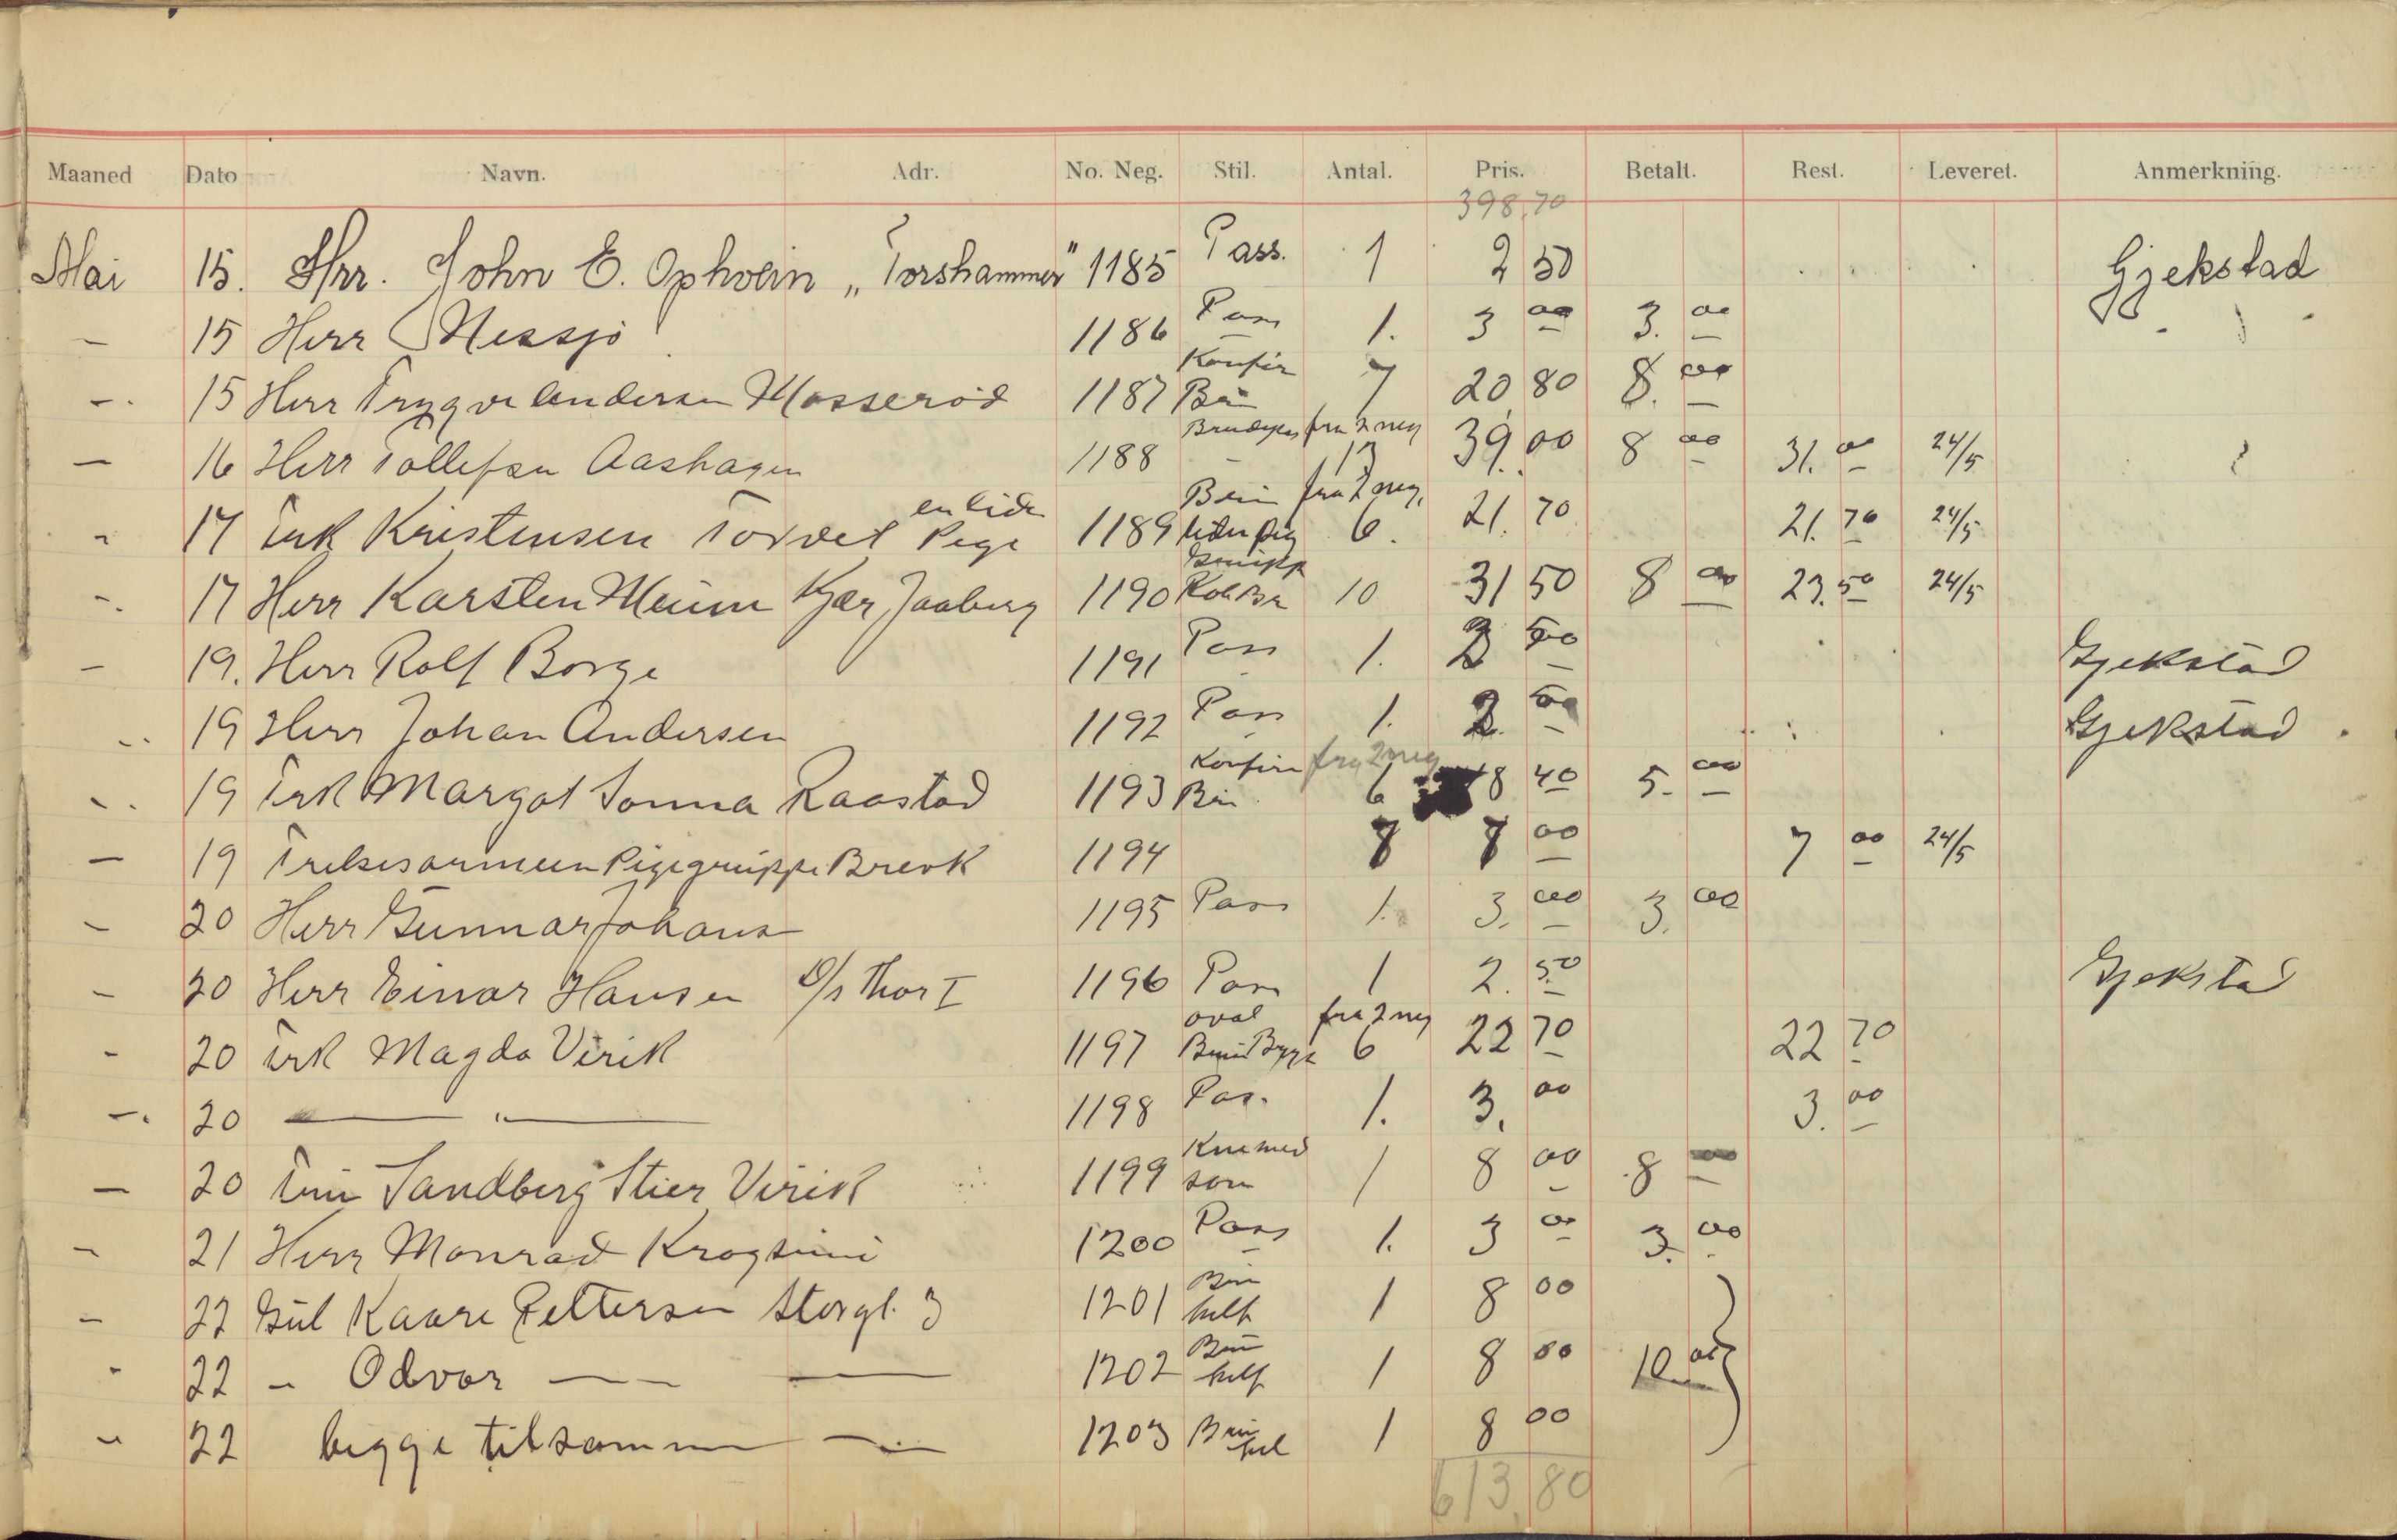 Maaned Dato Navn. Adr. No. Neg. Stil. Antal. Pris. Betalt. Rest. Leveret. Anmerkning.
398,70
Mai 15. Hrr. John E. Ophvein „Torshammer" 1185 Pass. 1 2 50 Gjekstad
— 15 Herr Nessjø 1186 Pass 1. 3 00 3. 00
— 15 Herr Trygve Andersen Mosserød 1187 Konfir Brü 7 20 80 8. 00
— 16 Herr Tollefsen Aashagen 1188 Brudepar fra 2 neg 13 39. 00 8 00 31. 00 24/5
" 17 Frk Kristensen Torvet en liden Pige 1189 Brün liden pig fra 2 neg. 6. 21. 70 21. 70 24/5
— 17 Herr Karsten Kjær Jaaberg 1190 Grüpp 10 31 50 8 00 23. 50 24/5
— 19. Herr Rolf Borge 1191 Pass 1. 2 50 Gjekstad
— 19 Herr Johan Andersen 1192 Pass 1. 2 50 Gjekstad
— 19 Frk Margot Sonna Raastad 1193 Konfirm Brü fra 2 neg 6 18 40 5. 00
— 19 Frelsesarmeen Pigegrüppe Brevik 1194 8 7 00 7 00 24/5
— 20 Herr Gunnar Johansen 1195 Pass 1. 3. 00 3. 00
— 20 Herr Einar Hansen D/s Thor I 1196 Pass 1 2. 50 Gjekstad
— 20 Frk Magda Virik 1197 oval Brün fra 2 neg 6 22 70 22 70
— 20 — " — 1198 Pas. 1. 3. 00 3. 00
— 20 Frü Sandberg Stier Virik 1199 Kne med son 1 8 00 8 00
— 21 Herr Monrad 1200 Pass 1. 3 00 3. 00
— 22 Gül Kaare Pettersen Storgt. 3 1201 Brü 1 8 00
" 22 " Odvar — — 1202 Brü 1 8 00 10 00
" 22 begge tilsammen — " — 1203 Brün 1 8 00
613,80